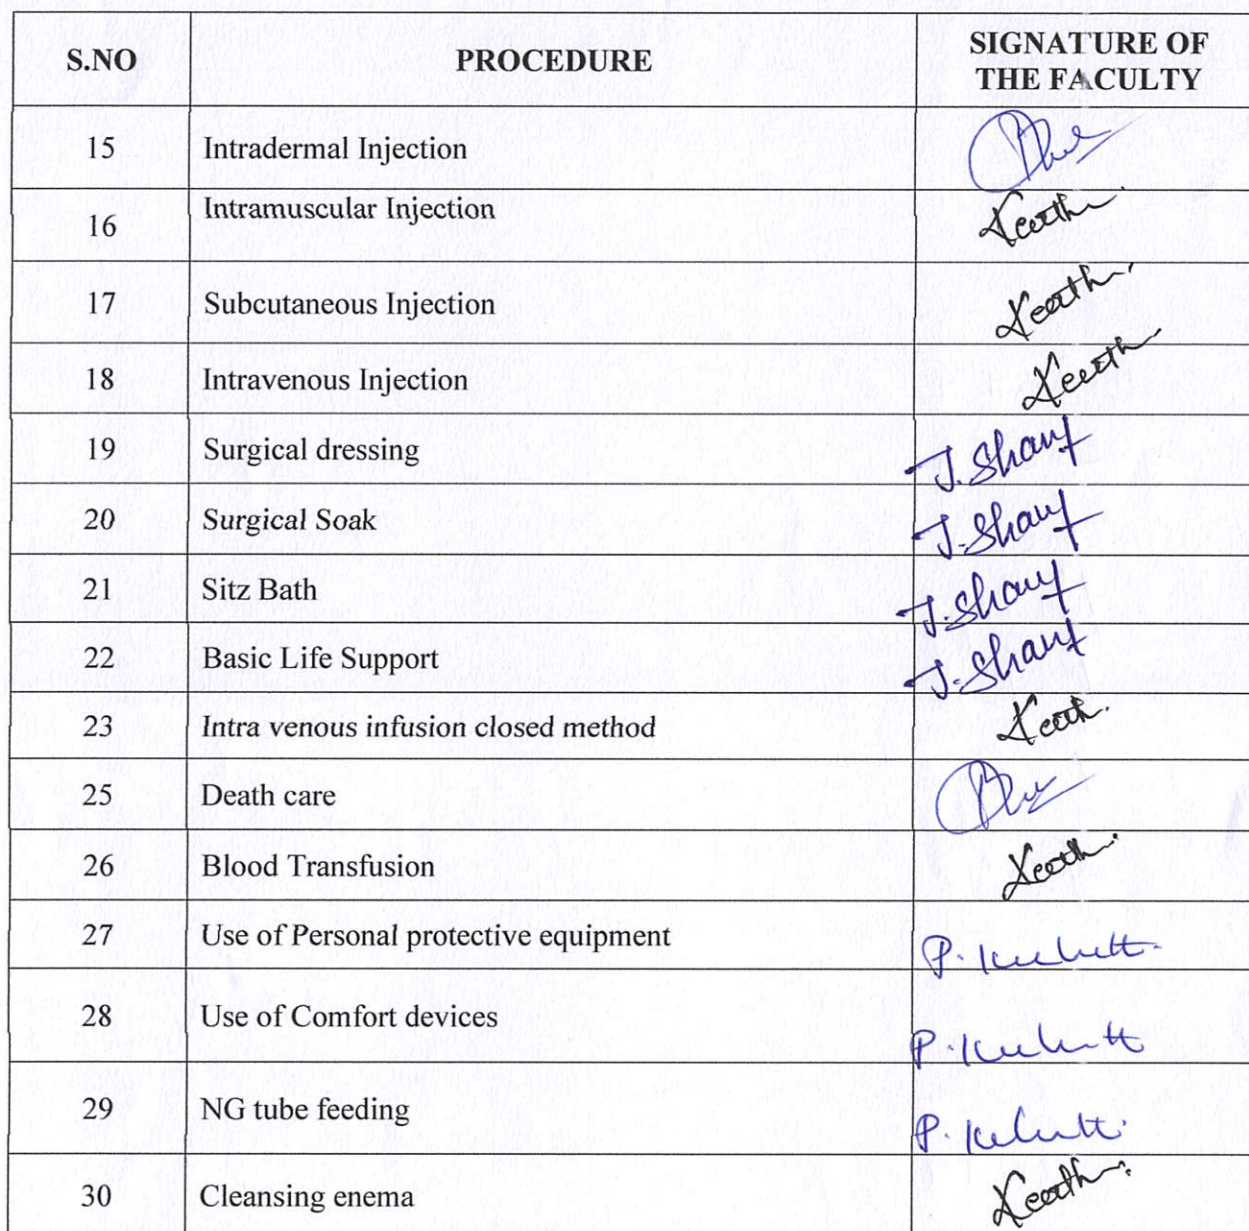 S.NO PROCEDURE SIGNATURE OF
THE FACULTY
15 Intradermal Injection
16 Intramuscular Injection
17 Subcutaneous Injection
18 Intravenous Injection
19 Surgical dressing J.
20 Surgical Soak J.
21 Sitz Bath J.
22 Basic Life Support J.
23 Intra venous infusion closed method
25 Death care
26 Blood Transfusion
27 Use of Personal protective equipment P.
28 Use of Comfort devices P.
29 NG tube feeding P.
30 Cleansing enema